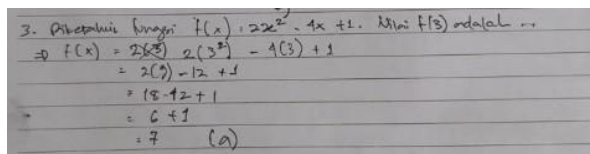 3. Diketahui fungsi f(x) = 2x² - 4x + 1. Nilai f(3) adalah ...
⇒ f(x) = 2(3²) - 4(3) + 1
= 2(9) - 12 + 1
= 18 - 12 + 1
= 6 + 1
= 7 (a)